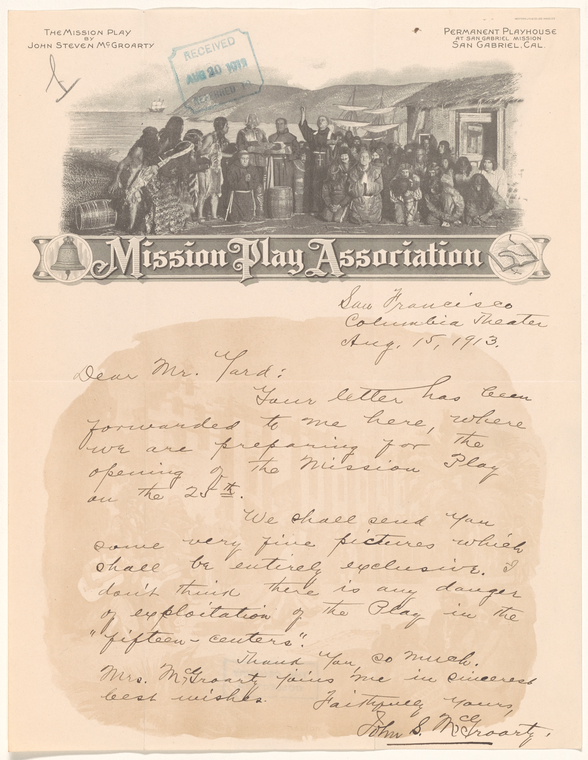 The Mission Play
by
John Steven McGroarty
Permanent Playhouse
at San Gabriel Mission
San Gabriel, Cal.
RECEIVED
AUG 20 1913
Mission Play Association
San Francisco
Columbia Theater
Aug. 15, 1913.
Dear Mr. Yard:
Your letter has been
forwarded to me here, where
we are preparing for the
opening of the Mission Play
on the 25th.
We shall send you
some very fine pictures which
shall be entirely exclusive. I
don't think there is any danger
of exploitation of the Play in the
"fifteen-centers".
Thank you, so much.
Mrs. McGroarty joins me in sincerest
best wishes. Faithfully Yours,
John S. McGroarty.